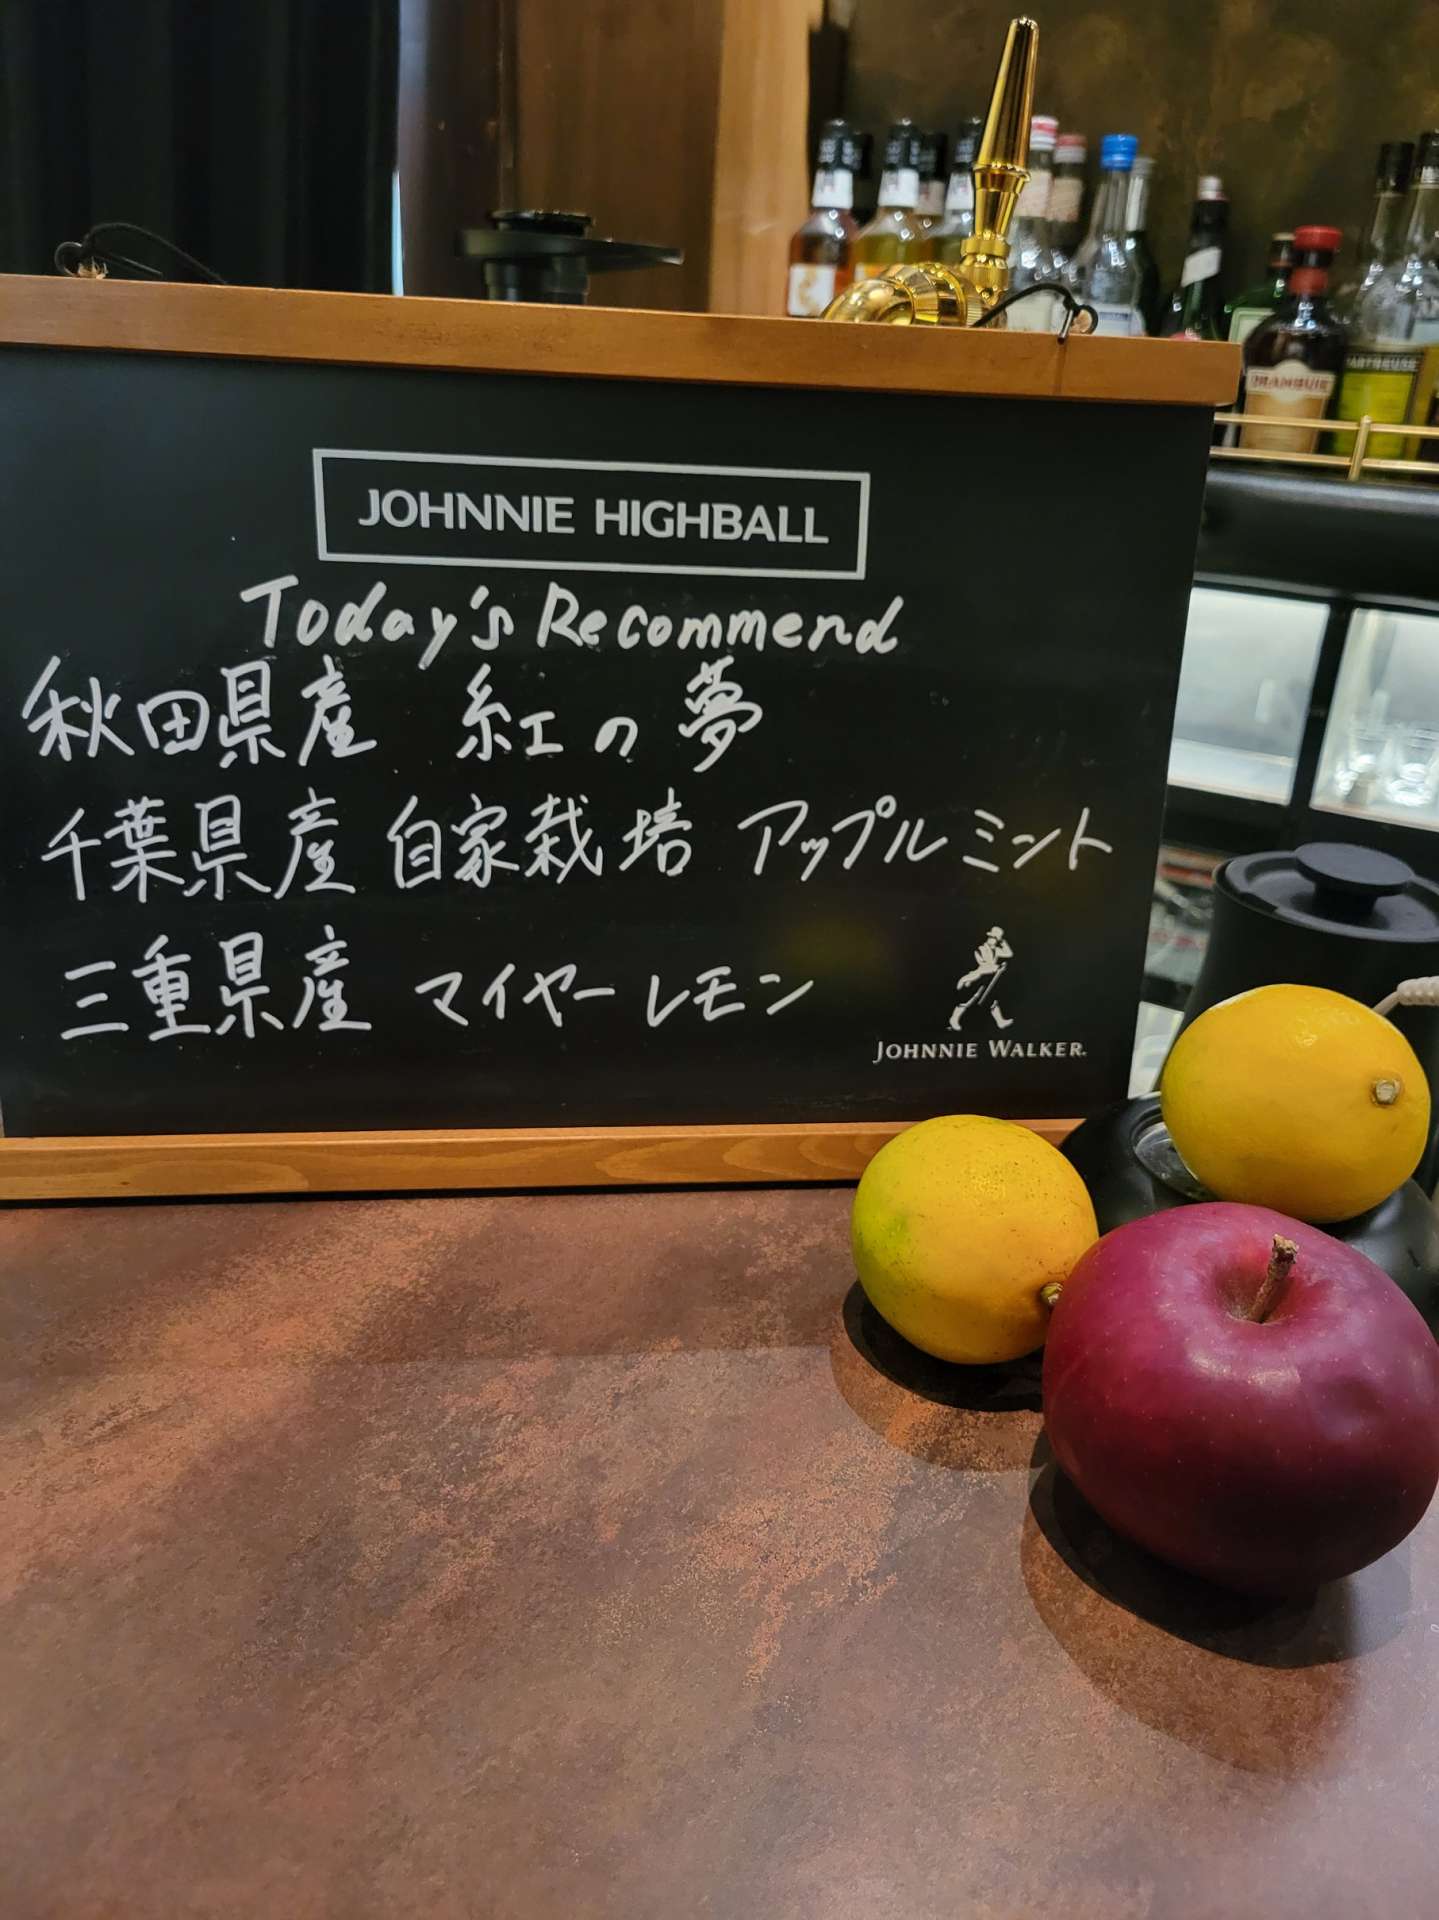 DRAMBUIE
CHARTREUSE
JOHNNIE HIGHBALL
Today's Recommend
秋田県産 紅の夢
千葉県産 自家栽培 アップルミント
三重県産 マイヤーレモン
JOHNNIE WALKER.